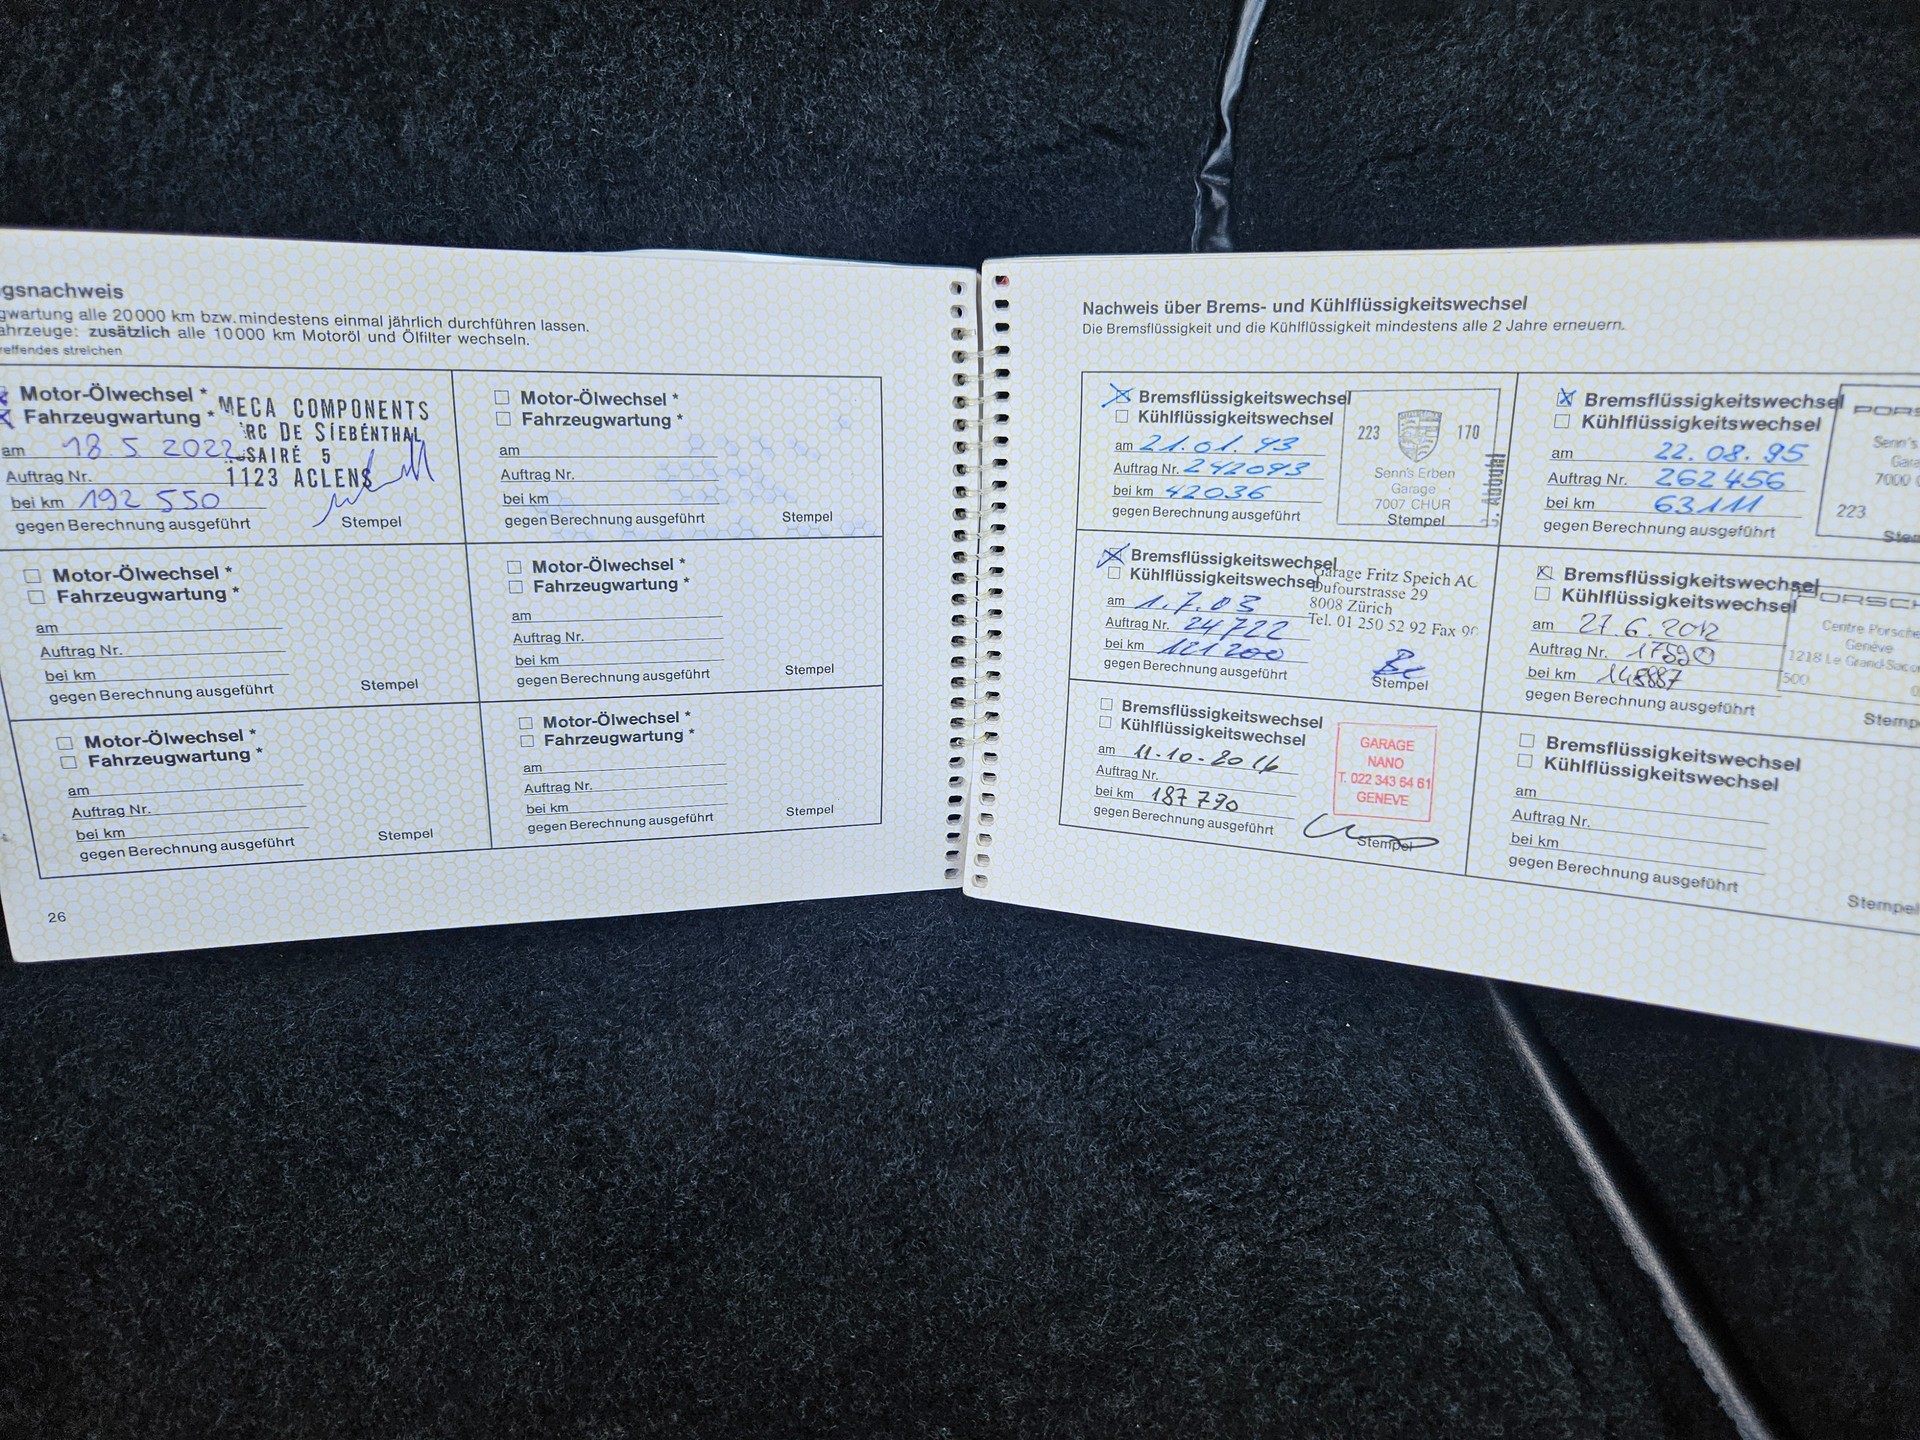 gsnachweis
gwartung alle 20 000 km bzw. mindestens einmal jährlich durchführen lassen.
ahrzeuge: zusätzlich alle 10 000 km Motoröl und Ölfilter wechseln.
reffendes streichen
Motor-Ölwechsel *
Fahrzeugwartung *
am 18 5 2022
Auftrag Nr.
bei km 192 550
gegen Berechnung ausgeführt
Stempel
MECA COMPONENTS
RC DE SIEBENTHAL
SAIRÉ 5
1123 ACLENS
Motor-Ölwechsel *
Fahrzeugwartung *
am
Auftrag Nr.
bei km
gegen Berechnung ausgeführt
Stempel
Motor-Ölwechsel *
Fahrzeugwartung *
am
Auftrag Nr.
bei km
gegen Berechnung ausgeführt
Stempel
Motor-Ölwechsel *
Fahrzeugwartung *
am
Auftrag Nr.
bei km
gegen Berechnung ausgeführt
Stempel
Motor-Ölwechsel *
Fahrzeugwartung *
am
Auftrag Nr.
bei km
gegen Berechnung ausgeführt
Stempel
Motor-Ölwechsel *
Fahrzeugwartung *
am
Auftrag Nr.
bei km
gegen Berechnung ausgeführt
Stempel
26
Nachweis über Brems- und Kühlflüssigkeitswechsel
Die Bremsflüssigkeit und die Kühlflüssigkeit mindestens alle 2 Jahre erneuern.
Bremsflüssigkeitswechsel
Kühlflüssigkeitswechsel
am 21.01.93
Auftrag Nr. 242093
bei km 42036
gegen Berechnung ausgeführt
223 170
Senn's Erben
Garage
7007 CHUR
Stempel
Bremsflüssigkeitswechsel
Kühlflüssigkeitswechsel
am 22.08.95
Auftrag Nr. 262456
bei km 63111
gegen Berechnung ausgeführt
PORS
Senn's
Gara
7000 C
223
Stem
Bremsflüssigkeitswechsel
Kühlflüssigkeitswechsel
am 1.7.03
Auftrag Nr. 24722
bei km 121200
gegen Berechnung ausgeführt
Garage Fritz Speich AG
Dufourstrasse 29
8008 Zürich
Tel. 01 250 52 92 Fax
Stempel
Bremsflüssigkeitswechsel
Kühlflüssigkeitswechsel
am 27.6.2012
Auftrag Nr. 17590
bei km 145887
gegen Berechnung ausgeführt
PORSCH
Centre Porsche
Genève
1218 Le Grand-Sacon
500
Stemp
Bremsflüssigkeitswechsel
Kühlflüssigkeitswechsel
am 11.10.2016
Auftrag Nr.
bei km 187 790
gegen Berechnung ausgeführt
GARAGE
NANO
T. 022 343 64 61
GENEVE
Stempel
Bremsflüssigkeitswechsel
Kühlflüssigkeitswechsel
am
Auftrag Nr.
bei km
gegen Berechnung ausgeführt
Stempel